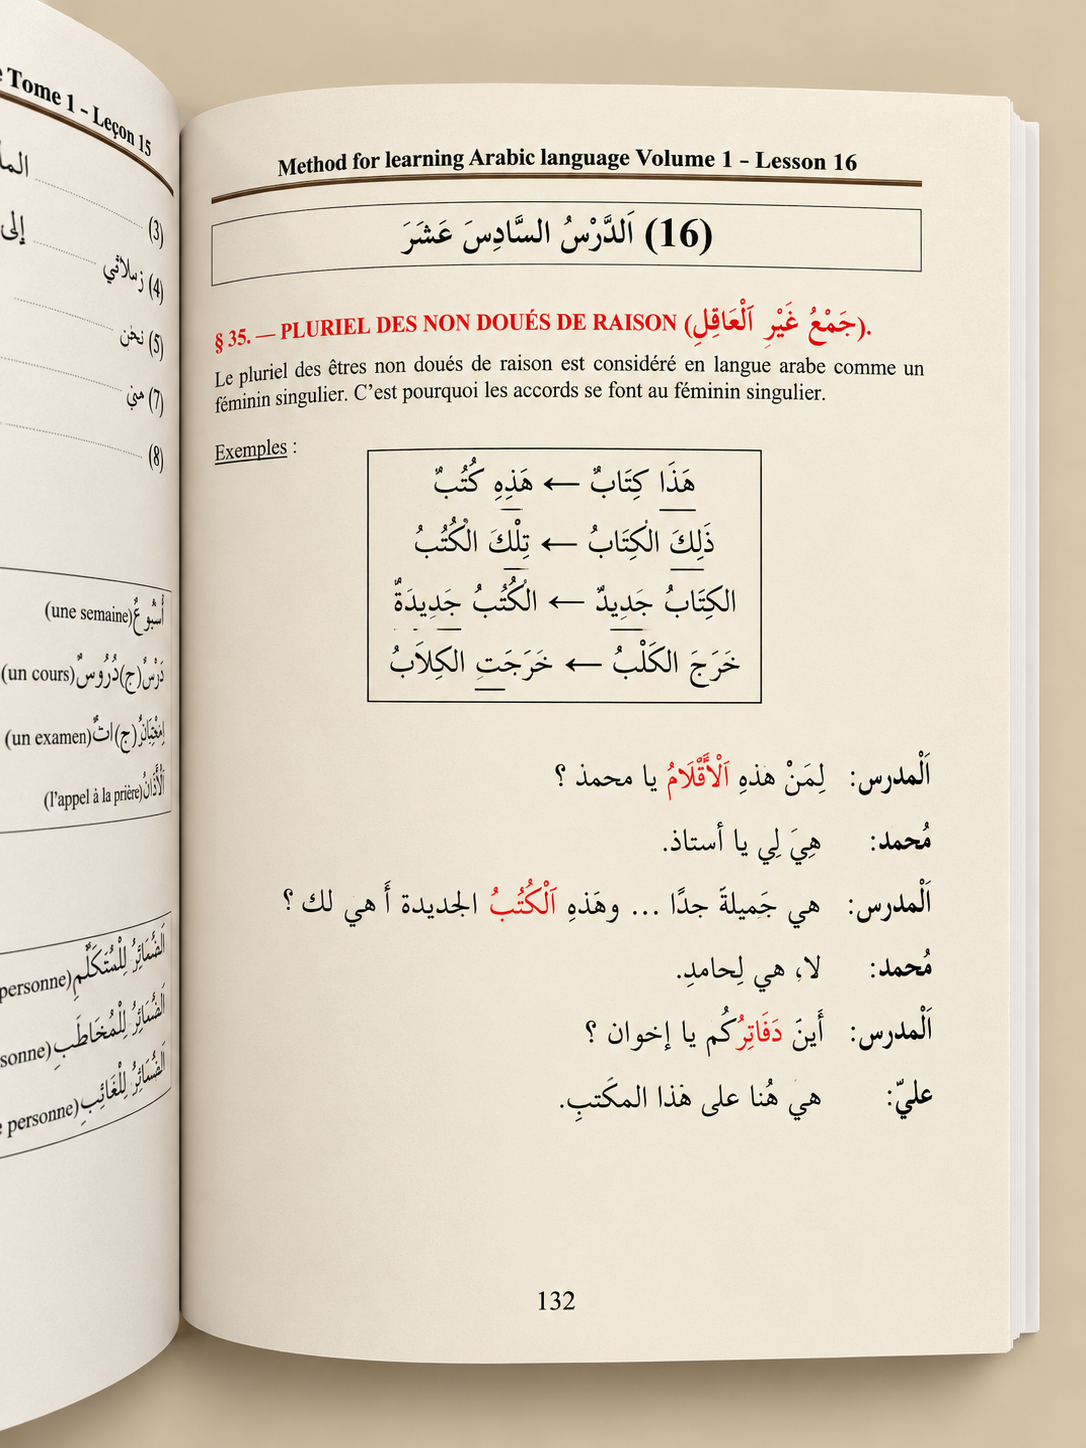 Tome 1 - Leçon 15
(3)
إلى
(4) زملائي
(5) نحن
(7) مني
(8)
أُسْبُوعٌ (une semaine)
دَرْسٌ (ج) دُرُوسٌ (un cours)
(ج) اتٌ (un examen)
اَلْأَذَانُ (l'appel à la prière)
personne)
sonne)
personne)
Method for learning Arabic language Volume 1 - Lesson 16
(16) اَلدَّرْسُ السَّادِسَ عَشَرَ
§ 35. — PLURIEL DES NON DOUÉS DE RAISON (جَمْعُ غَيْرِ اَلْعَاقِلِ).
Le pluriel des êtres non doués de raison est considéré en langue arabe comme un
féminin singulier. C’est pourquoi les accords se font au féminin singulier.
Exemples :
هَذَا كِتَابٌ ← هَذِهِ كُتُبٌ
ذَلِكَ الْكِتَابُ ← تِلْكَ الْكُتُبُ
الكِتَابُ جَدِيدٌ ← الْكُتُبُ جَدِيدَةٌ
خَرَجَ الكَلْبُ ← خَرَجَتِ الكِلاَبُ
اَلْمدرس: لِمَنْ هذهِ اَلْأَقْلَامُ يا محمذ ؟
مُحمد: هِيَ لِي يا أستاذ.
اَلْمدرس: هي جَميلةَ جدًا ... وهَذهِ اَلْكُتُبُ الجديدة أَ هي لك ؟
مُحمد: لا، هي لِحامدِ.
اَلْمدرس: أَينَ دَفَاتِرُكُم يا إخوان ؟
عليّ: هي هُنا على هٰذا المكَتبِ.
132